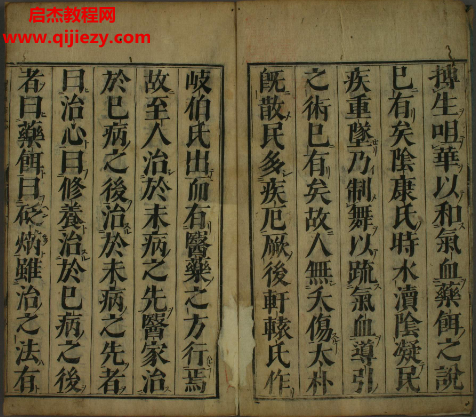 启杰教程网
www.qijiezy.com
摶生咀華以和氣血藥餌之說
巳有矣陰康氏時水瀆陰凝民
疾重墜乃制舞以疏氣血導引
之術巳有矣故人無夭傷太朴
既散民多疾厄厥後軒轅氏作
岐伯氏出而有醫藥之方行焉
故至人治於未病之先醫家治
於巳病之後治於未病之先者
曰治心曰修養治於巳病之後
者曰藥餌曰砭焫雖治之法有